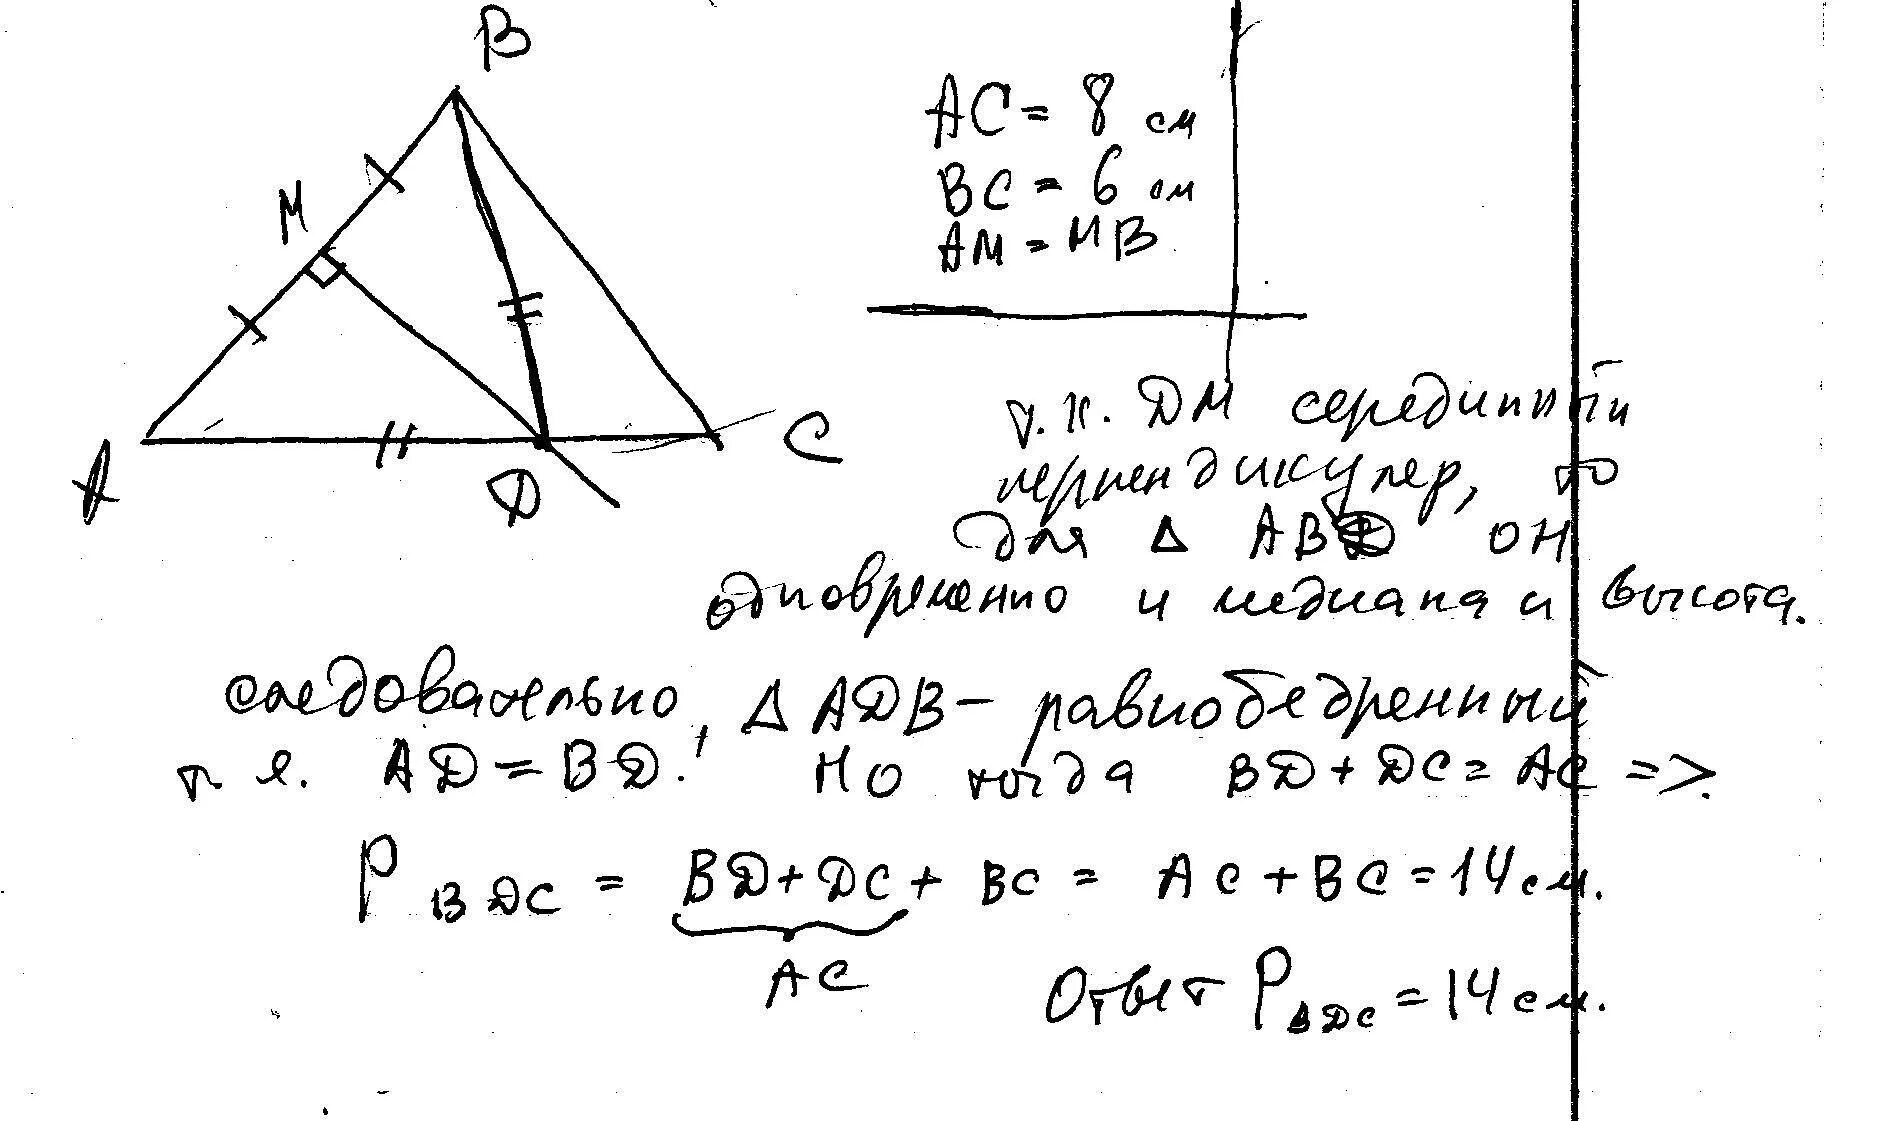 B
M
A
D
C
AC = 8 см
BC = 6 см
AM = MB
т.к. DM серединный
перпендикуляр, то
для Δ ABD он
одновременно и медиана и высота.
следовательно, Δ ADB – равнобедренный
т.е. AD = BD. Но тогда BD + DC = AC =>.
P BDC = BD + DC + BC = AC + BC = 14 см.
AC
Ответ P BDC = 14 см.